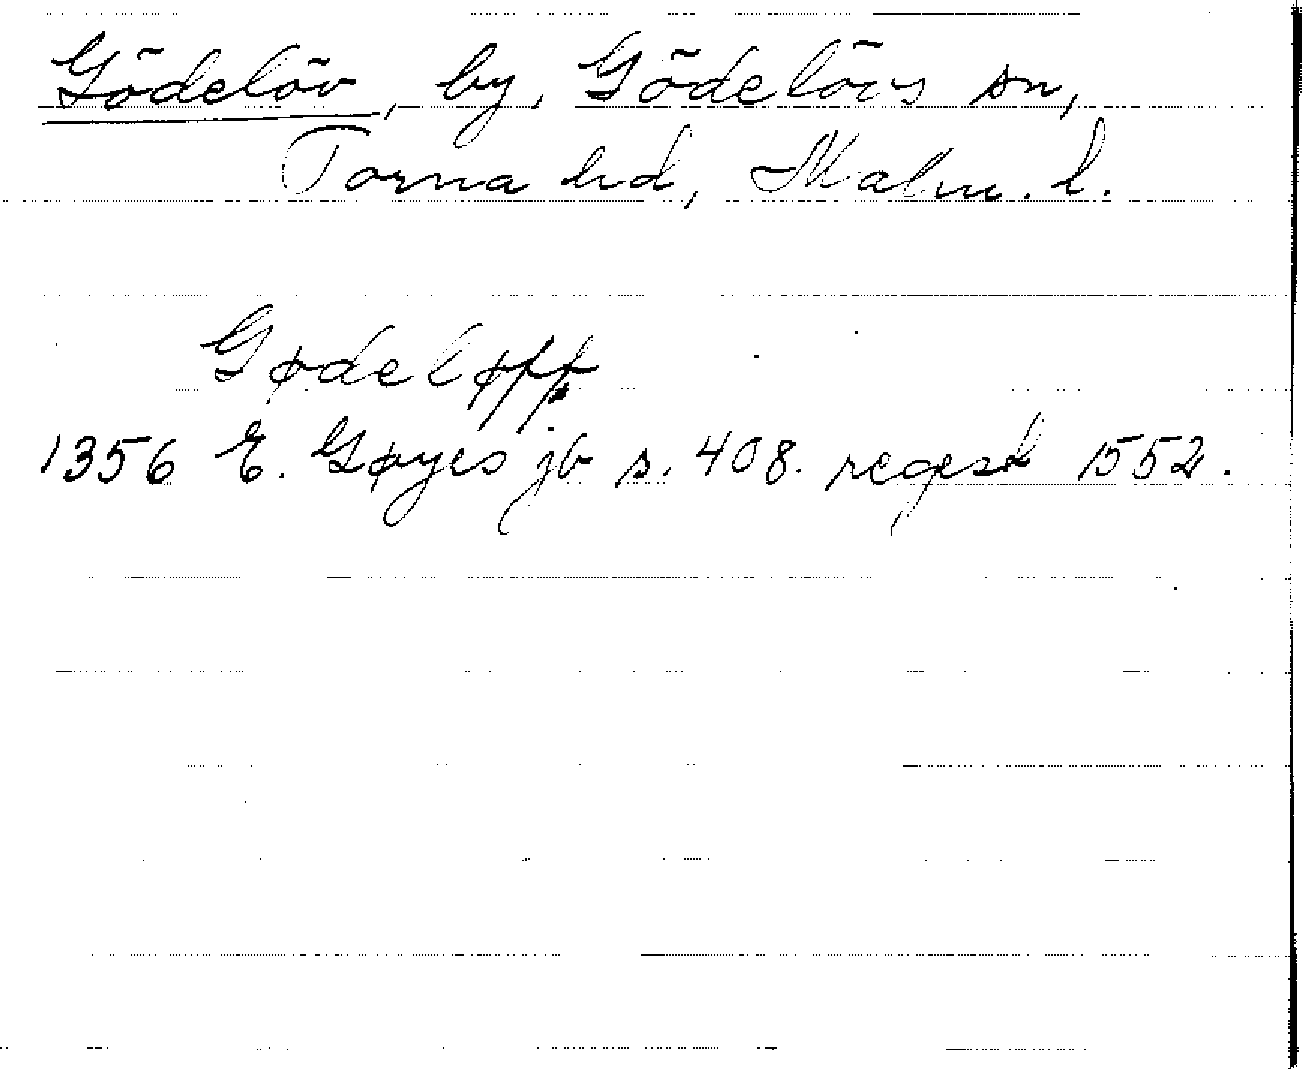 Gödelöv, by, Gödelövs sn,
Torna hd, Malm. l.
Gødeløff
1356 E. Gøyes jb s. 408. regest 1552.